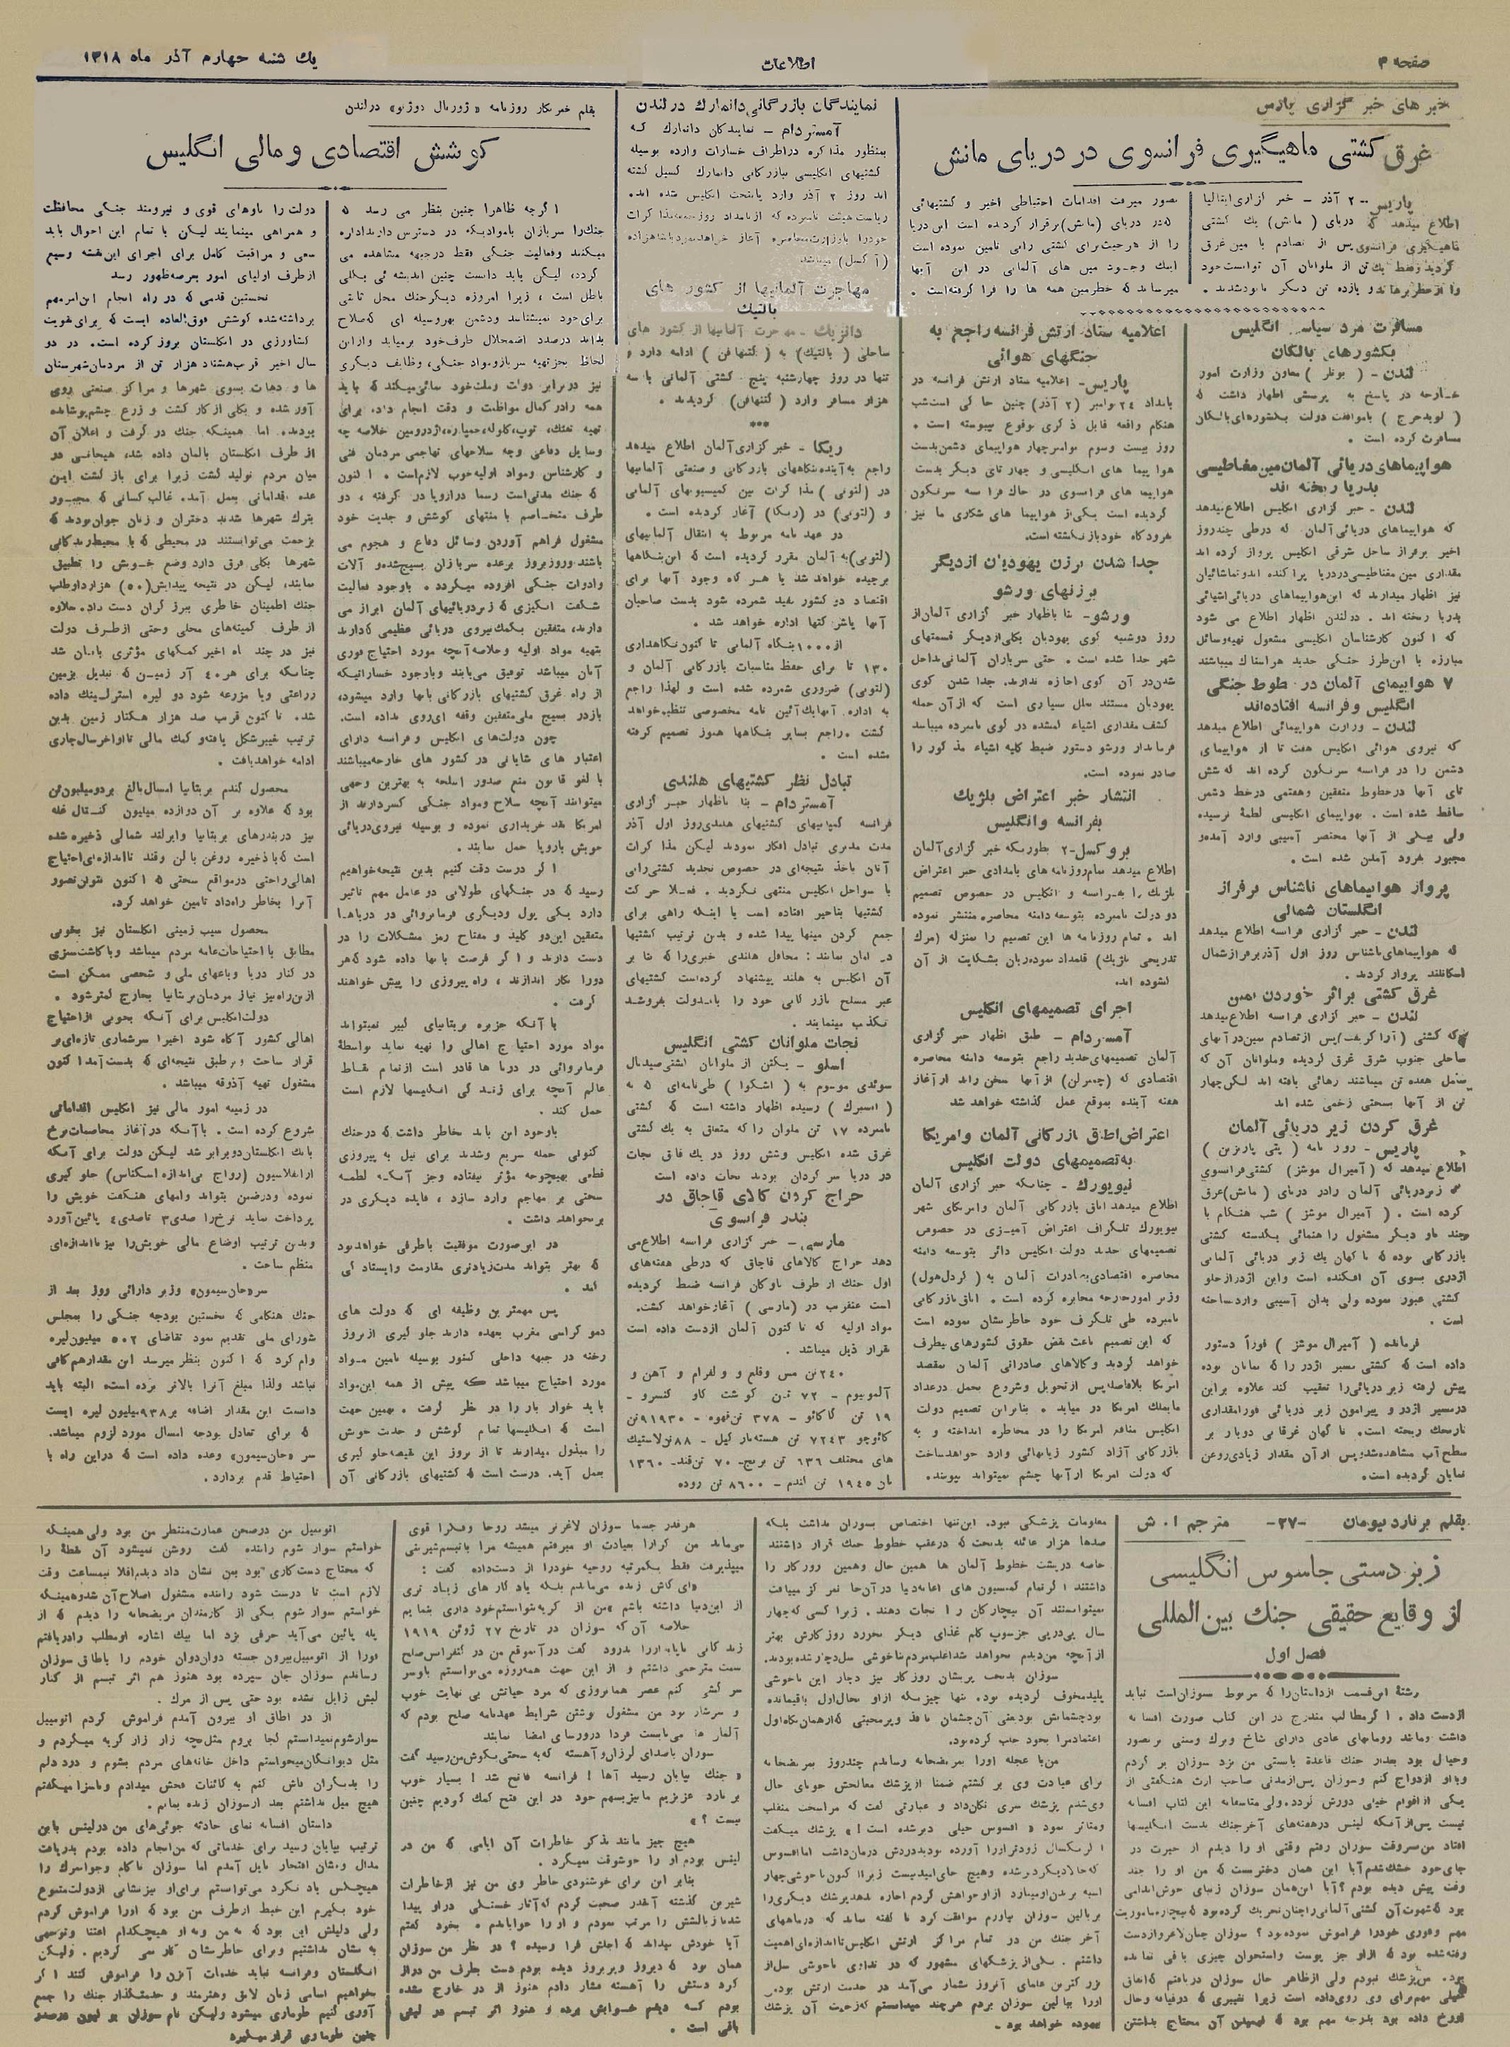 صفحه ۴
اطلاعات
یک شنبه چهارم آذر ماه ۱۳۱۸
خبر های خبر گزاری پارس
غرق کشتی ماهیگیری فرانسوی در دریای مانش
پاریس ۲۰ آذر - خبر گزاری
اطلاع میدهد که دریای (مانش) یک کشتی
ماهیگیری فرانسوی پس از تصادم با مین غرق
گردید و فقط یک تن از ملوانان آن توانست خود
را از خطر برهاند و یازده تن دیگر نابود شدند.
تصور میرفت اقدامات احتیاطی اخیر و کشتیهائی
که در دریای (مانش) برقرار کرده است این دریا
را از هر حیث برای کشتی رانی تامین نموده است
اینک وجود مین های آلمانی در این آبها
میرساند که خطر مین همه ها را فرا گرفته است.
مسافرت مرد سیاسی انگلیس
بکشورهای بالکان
لندن - ( بوتلر ) معاون وزارت امور
خارجه در پاسخ به پرسشی اظهار داشت که
( لویدجرج ) با موافقت دولت بکشورهای بالکان
مسافرت کرده است .
هواپیماهای دریائی آلمان مین مغناطیسی
بدریا ریخته اند
لندن - خبر گزاری انگلیس اطلاع میدهد
که هواپیماهای دریائی آلمان که در طی چند روز
اخیر بر فراز ساحل شرقی انگلیس پرواز کرده اند
مقداری مین مغناطیسی در دریا پراکنده اند و تماشائیان
نیز اظهار میدارند که این هواپیماهای دریائی اشیائی
بدریا ریخته اند . در لندن اظهار اطلاع می شود
که اکنون کارشناسان انگلیسی مشغول تهیه وسائل
مبارزه با این طرز جنگی جدید هراسناک میباشند
۷ هواپیمای آلمان در خطوط جنگی
انگلیس و فرانسه افتاده اند
لندن - وزارت هواپیمائی اطلاع میدهد
که نیروی هوائی انگلیس هفت تا از هواپیمای
دشمن را در فرانسه سرنگون کرده اند که شش
تای آنها در خطوط متفقین و هفتمی در خط دشمن
ساقط شده است . بهواپیمای انگلیسی لطمهٔ نرسیده
ولی بیکی از آنها مختصر آسیبی وارد آمده و
مجبور بفرود آمدن شده است .
پرواز هواپیماهای ناشناس بر فراز
انگلستان شمالی
لندن - خبر گزاری فرانسه اطلاع میدهد
که هواپیماهای ناشناس روز اول آذر بر فراز شمال
اسکاتلند پرواز کردند .
غرق کشتی براثر خوردن بمین
لندن - خبر گزاری فرانسه اطلاع میدهد
ساحلی جنوب شرق غرق گردیده و ملوانان آن که
تن از آنها بسختی زخمی شده اند
غرق کردن زیر دریائی آلمان
پاریس - روزنامه ( پتی پاریزین )
اطلاع میدهد که (آمیرال موشز) کشتی فرانسوی
زیر دریائی آلمان را در دریای (مانش) غرق
کرده است . ( آمیرال موشز ) شب هنگام با
چند ناو دیگر مشغول راهنمائی یکدسته کشتی
بازرگانی بوده که ناگهان یک زیر دریائی آلمانی
اژدری بسوی آن افکنده است و این اژدر از جلو
کشتی عبور نموده ولی بدان آسیبی وارد نساخته
است .
فرمانده ( آمیرال موشز ) فوراً دستور
داده است که کشتی مسیر اژدر را که نمایان بوده
پیش گرفته زیر دریائی را تعقیب کند علاوه براین
در مسیر اژدر و پیرامون زیر دریائی فورا مقداری
نارنجک ریخته است . ناگهان غرقابی دوبار بر
سطح آب مشاهده شد پس از آن مقدار زیادی روغن
نمایان گردیده است.
اعلامیه ستاد ارتش فرانسه راجع به
جنگهای هوائی
پاریس - اعلامیه ستاد ارتش فرانسه در
بامداد ۲۴ نوامبر (۲ آذر) چنین حاکی است شب
هنگام واقعه قابل ذکری بوقوع نپیوسته است .
روز بیست و سوم نوامبر چهار هواپیمای دشمن بدست
هواپیما های انگلیسی و چهار تای دیگر بدست
هواپیما های فرانسوی در خاک فرانسه سرنگون
گردیده است یکی از هواپیما های شکاری ما نیز
بفرودگاه خود باز نگشته است.
جدا شدن برزن یهودیان از دیگر
برزنهای ورشو
ورشو - بنا باظهار خبر گزاری آلمان از
روز دوشنبه کوی یهودیان بکلی از دیگر قسمتهای
شهر جدا شده است . حتی سربازان آلمانی داخل
شدن در آن کوی اجازه ندارند. جدا شدن کوی
یهودیان مستند بعلل بسیاری است که از آن جمله
کشف مقداری اشیاء گمشده در کوی نامبرده میباشد
فرماندار ورشو دستور ضبط کلیه اشیاء مذکور را
صادر نموده است.
انتشار خبر اعتراض بلژیک
بفرانسه و انگلیس
بروکسل ۲ - بطوریکه خبر گزاری آلمان
اطلاع میدهد تمام روزنامه های بامدادی خبر اعتراض
بلژیک را بفرانسه و انگلیس در خصوص تصمیم
دو دولت نامبرده بتوسعه دامنه محاصره منتشر نموده
اند . تمام روزنامه ها این تصمیم را بمنزله (مرگ
تدریجی بلژیک) قلمداد نموده زبان بشکایت از آن
گشوده اند.
اجرای تصمیمهای انگلیس
آمستردام - طبق اظهار خبر گزاری
آلمان تصمیمهای جدید راجع بتوسعه دامنه محاصره
اقتصادی که (چمبرلن) از آنها سخن راند از آغاز
هفته آینده بموقع عمل گذاشته خواهد شد
اعتراض اطاق بازرگانی آلمان و امریکا
به تصمیمهای دولت انگلیس
نیویورک - چنانکه خبر گزاری آلمان
اطلاع میدهد اطاق بازرگانی آلمان و امریکای شهر
نیویورک تلگراف اعتراض آمیزی در خصوص
تصمیمهای جدید دولت انگلیس دائر بتوسعه دامنه
محاصره اقتصادی بصادرات آلمان به ( کردل هول)
وزیر امور خارجه مخابره کرده است . اطاق بازرگانی
نامبرده طی تلگراف خود خاطر نشان نموده است
که این تصمیم باعث نقض حقوق کشورهای بیطرف
خواهد گردید و کالاهای صادراتی آلمان بمقصد
امریکا بلافاصله پس از تحویل و شروع بحمل در عداد
مایملک امریکا در میاید . بنابراین تصمیم دولت
انگلیس منافع امریکا را در مخاطره انداخته و به
بازرگانی آزاد کشور زیانهائی وارد خواهد ساخت
که دولت امریکا از آنها چشم نمیتواند بپوشد.
نمایندگان بازرگانی دانمارک در لندن
آمستردام - نمایندگان دانمارک که
بمنظور مذاکره در اطراف خسارات وارده بوسیله
کشتیهای انگلیسی ببازرگانی دانمارک گسیل گشته
اند روز ۲ آذر وارد پایتخت انگلیس شده اند.
ریاست هیئت نامبرده که از بامداد روز جمعه مذاکرات
خود را با وزارت محاصره آغاز خواهد نمود با شاهزاده
(آکسل) میباشد
مهاجرت آلمانیها از کشور های
بالتیک
دانزیک - مهاجرت آلمانیها از کشور های
ساحلی ( بالتیک) به (گتنهافن) ادامه دارد و
تنها در روز چهارشنبه پنج کشتی آلمانی با سه
هزار مسافر وارد (گتنهافن) گردیدند .
***
ریگا - خبر گزاری آلمان اطلاع میدهد
راجع به آینده بنگاههای بازرگانی و صنعتی آلمانیها
در (لتونی) مذاکرات بین کمیسیونهای آلمانی
و (لتونی) در (ریگا) آغاز گردیده است .
در عهد نامه مربوط به انتقال آلمانیهای
(لتونی) به آلمان مقرر گردیده است که این بنگاهها
برچیده خواهد شد یا هر گاه وجود آنها برای
اقتصاد در کشور مفید شمرده شود بدست صاحبان
آنها یا شرکتها اداره خواهد شد .
از ۱۰۰۰ بنگاه آلمانی تا کنون نگاهداری
۱۳۰ تا برای حفظ مناسبات بازرگانی آلمان و
(لتونی) ضروری شمرده شده است و لهذا راجع
به اداره آنها یک آئین نامه مخصوصی تنظیم خواهد
گشت . راجع بسایر بنگاهها هنوز تصمیم گرفته
نشده است .
تبادل نظر کشتیهای هلندی
آمستردام - بنا باظهار خبر گزاری
فرانسه کمپانیهای کشتیهای هلندی روز اول آذر
مدت مدیدی تبادل افکار نمودند لیکن مذاکرات
آنان باخذ نتیجه‌ای در خصوص تجدید کشتی رانی
با سواحل انگلیس منتهی نگردید . فعلا حرکت
کشتیها بتاخیر افتاده است یا اینکه راهی برای
جمع کردن مینها پیدا شده و بدین ترتیب کشتیها
در امان بمانند : محافل هلندی خبری را که بنا بر
آن انگلیس به هلند پیشنهاد کرده است کشتیهای
غیر مسلح بازرگانی خود را باین دولت بفروشد
تکذیب مینمایند .
نجات ملوانان کشتی انگلیس
اسلو - یکتن از ملوانان کشتی صید بال
سوئدی موسوم به (اشکوا) طی نامه‌ای که به
نامبرده ۱۷ تن ملوان را که متعلق به یک کشتی
غرق شده انگلیس و شش روز در یک قایق نجات
در دریا سرگردان بودند نجات داده است
حراج کردن کالای قاچاق در
بندر فرانسوی
مارسی - خبر گزاری فرانسه اطلاع می
دهد حراج کالاهای قاچاق که در طی هفته‌های
اول جنگ از طرف ناوگان فرانسه ضبط گردیده
است عنقریب در (مارسی) آغاز خواهد گشت.
مواد اولیه که تا کنون آلمان از دست داده است
بقرار ذیل میباشد .
۲۴۰ تن مس و قلع و ولفرام و آهن و
آلومنیوم - ۷۲ تن گوشت گاو کنسرو -
۱۹ تن کاکائو - ۳۷۸ تن قهوه - ۹۱۹۳۰ تن
کائوچو ۷۲۴۳ تن هسته نارگیل - ۸۸ تن لاستیک
های مختلف ۱۳۶ تن برنج - ۷۰ تن قند - ۱۳۶۰
تن ۱۹۴۵ تن گندم - ۸۶۰۰ تن روده
بقلم خبرنگار روزنامه « ژورنال دوژنو» در لندن
کوشش اقتصادی و مالی انگلیس
اگرچه ظاهرا چنین بنظر می رسد که
جنگ را سربازان با موادیکه در دسترس دارند اداره
میکنند و فعالیت جنگی فقط در جبهه مشاهده می
گردد، لیکن باید دانست چنین اندیشه ئی بکلی
باطل است ، زیرا امروزه دیگر جنگ محل ثابتی
برای خود نمیشناسد و دشمن بهر وسیله ای که صلاح
بداند در صدد اضمحلال طرف خود برمیاید و از این
لحاظ بجز تهیه سرباز و مواد جنگی، وظایف دیگری
نیز در برابر دولت و ملت خود نمائی میکند که باید
همه را در کمال مواظبت و دقت انجام داد، برای
تهیه تفنگ، توپ، گلوله، خمپاره، اژدر و مین خلاصه چه
وسایل دفاعی و چه سلاحهای تهاجمی مردمان فنی
و کارشناس و مواد اولیه خوب لازم است . اکنون
که جنگ مدتی است رسما در اروپا در گرفته ، دو
طرف متخاصم با منتهای کوشش و جدیت خود
مشغول فراهم آوردن وسائل دفاع و هجوم می
باشند و روز بروز بر عده سربازان بسیج شده و آلات
و ادوات جنگی افزوده میگردد . باوجود فعالیت
شگفت انگیزی که زیر دریائیهای آلمان ابراز می
دارند، متفقین بکمک نیروی دریائی عظیمی که دارند
بتهیه مواد اولیه و خلاصه آنچه مورد احتیاج فوری
آنان میباشد توفیق می‌یابند و باوجود خساراتیکه
از راه غرق کشتیهای بازرگانی بآنها وارد میشود،
بازدر بسیج ملی متفقین وقفه ای روی نداده است.
چون دولت‌های انگلیس و فرانسه دارای
اعتبار های شایانی در کشور های خارجه میباشند
با لغو قانون منع صدور اسلحه به بهترین وجهی
میتوانند آنچه سلاح و مواد جنگی کسر دارند از
امریکا نقد خریداری نموده و بوسیله نیروی دریائی
خویش باروپا حمل نمایند .
اگر درست دقت کنیم بدین نتیجه خواهیم
رسید که در جنگهای طولانی دو عامل مهم تاثیر
دارد یکی پول و دیگری فرمانروائی در دریاها.
متفقین این دو کلید و مفتاح رمز مشکلات را در
دست دارند و اگر فرصت بآنها داده شود که هر
دو را بکار اندازند ، راه پیروزی را پیش خواهند
گرفت .
با آنکه جزیره بریتانیای کبیر نمیتواند
مواد مورد احتیاج اهالی را تهیه نماید بواسطهٔ
فرمانروائی در دریا ها قادر است از تمام نقاط
عالم آنچه برای زندگی انگلیسها لازم است
حمل کند .
باوجود این باید بخاطر داشت که در جنگ
کنونی حمله سریع و شدید برای نیل به پیروزی
قطعی بهیچوجه مؤثر نیفتاده و جز آنکه لطمه
سختی بر مهاجم وارد سازد ، فایده دیگری در
بر نخواهد داشت .
در این صورت موفقیت باطرفی خواهد بود
که بهتر بتواند مدت زیادتری مقاومت و ایستادگی
کند .
پس مهمترین وظیفه ای که دولت های
دموکراسی مغرب بعهده دارند جلو گیری از بروز
رخنه در جبهه داخلی کشور بوسیله تامین مواد
مورد احتیاج میباشد که پیش از همه این مواد
باید خوار بار را در نظر گرفت . بهمین جهت
است که انگلیسها تمام کوشش و جدیت خویش
را مبذول میدارند تا از بروز این نقیصه جلو گیری
بعمل آید. درست است که کشتیهای بازرگانی آن
دولت را ناوهای قوی و نیرومند جنگی محافظت
و همراهی مینمایند لیکن با تمام این احوال باید
سعی و مراقبت کامل برای اجرای این نقشه وسیع
از طرف اولیای امور بعرصه ظهور رسد
نخستین قدمی که در راه انجام این امر مهم
برداشته شده کوشش فوق العاده ایست که برای تقویت
کشاورزی در انگلستان بروز کرده است. در دو
سال اخیر قرب هشتاد هزار تن از مردمان شهرستان
ها و دهات بسوی شهرها و مراکز صنعتی روی
آور شده و بکلی از کار کشت و زرع چشم پوشانده
بودند. اما همینکه جنگ در گرفت و اعلان آن
از طرف انگلستان بآلمان داده شد، هیجانی در
میان مردم تولید گشت زیرا برای باز گشت این
عده اقداماتی بعمل آمد. غالب کسانی که مجبور
بترک شهرها شدند دختران و زنان جوان بودند که
بزحمت می‌توانستند در محیطی که با محیط زندگانی
شهرها بکلی فرق دارد وضع خویش را تطبیق
نمایند، لیکن در نتیجه پیدایش (۵۰) هزار داوطلب
جنگ اطمینان خاطری ببرزگران دست داد. علاوه
از طرف کمیته‌های محلی و حتی از طرف دولت
نیز در چند ماه اخیر کمکهای مؤثری بآنان شد
چنانکه برای هر ۴۰ آر زمین که تبدیل بزمین
زراعتی و یا مزرعه شود دو لیره استرلینگ داده
شد. تا کنون قرب صد هزار هکتار زمین بدین
ترتیب تغییر شکل یافته و کمک مالی تا اواخر سال جاری
ادامه خواهد یافت .
محصول گندم بریتانیا امسال بالغ بر دو میلیون تن
بود که علاوه بر آن دوازده میلیون کنتال غله
نیز در بندرهای بریتانیا و ایرلند شمالی ذخیره شده
است که با ذخیره روغن بالن و قند تا اندازه‌ای احتیاج
اهالی را حتی در مواقع سختی که اکنون نتوان تصور
آنرا بخاطر راه داد تامین خواهد کرد.
محصول سیب زمینی انگلستان نیز بخوبی
مطابق با احتیاجات عامه مردم میباشد و با کاشت سبزی
در کنار دریا و باغهای ملی و شخصی ممکن است
از این راه نیز نیاز مردمان بریتانیا بخارج کمتر شود .
دولت انگلیس برای آنکه بخوبی از احتیاج
اهالی کشور آگاه شود اخیرا سرشماری تازه‌ای بر
قرار ساخت و بر طبق نتیجه‌ای که بدست آمد اکنون
مشغول تهیه آذوقه میباشد .
در زمینه امور مالی نیز انگلیس اقداماتی
شروع کرده است . با آنکه در آغاز مخاصمات نرخ
بانک انگلستان دو برابر شد لیکن دولت برای آنکه
از انفلاسیون (رواج بی‌اندازه اسکناس) جلو گیری
نموده و در ضمن بتواند وامهای هنگفت خویش را
پرداخت نماید نرخ را صدی ۳ تا صدی ۴ پائین آورد
و بدین ترتیب اوضاع مالی خویش را نیز تا اندازه‌ای
منظم ساخت .
سر «جان سیمون» وزیر دارائی روز بعد از
جنگ هنگامی که نخستین بودجه جنگی را بمجلس
شورای ملی تقدیم نمود تقاضای ۵۰۲ میلیون لیره
وام کرد که اکنون بنظر میرسد این مقدار هم کافی
نباشد و لذا مبلغ آنرا بالاتر برده است، البته باید
دانست این مقدار اضافه بر ۹۳۸ میلیون لیره ایست
که برای تعادل بودجه امسال مورد لزوم میباشد.
سر «جان سیمون» وعده داده است که در این راه با
احتیاط قدم بردارد .
بقلم برنارد نیومان -۲۷- مترجم ا. ش
زبردستی جاسوس انگلیسی
از وقایع حقیقی جنگ بین المللی
فصل اول
رشتهٔ این قسمت از داستان را که مربوط بسوزان است نباید
از دست داد . اگر مطالب مندرج در این کتاب صورت افسانه
داشت و مانند رومانهای عادی دارای شاخ و برگ و مبتنی بر تصور
و خیال بود بعد از جنگ قاعدة بایستی من نزد سوزان بر گردم
و با او ازدواج کنم و سوزان پس از مدتی صاحب ارث هنگفتی از
یکی از اقوام خیلی دورش گردد. ولی متاسفانه این کتاب افسانه
نیست پس از آنکه لینس در هفته‌های آخر جنگ بدست انگلیسها
افتاد من سر وقت سوزان رفتم وقتی او را دیدم از حیرت در
جای خود خشک شدم آیا این همان دختریست که من او را چند
وقت پیش دیده بودم؟ آیا این همان سوزان زیبای خوش اندامی
مهم و فوری خود را فراموش نموده بود ؟ سوزان چنان لاغر و از دست
رفته شده بود که از او جز پوست و استخوان چیزی باقی نمانده
بود. من پزشک نبودم ولی از ظاهر حال سوزان دریافتم که اتفاق
خیلی مهم برای وی روی داده است زیرا تغییری که در قیافه و حال
او رخ داده بود بدرجه مهم بود که فهمیدن آن محتاج بداشتن
معلومات پزشکی نبود. این تنها اختصاص بسوزان نداشت بلکه
صدها هزار عائله بدبخت که در عقب خطوط جنگ قرار داشتند
خاصه در پشت خطوط آلمان ها همین حال و همین روزگار را
داشتند اگر تمام کمسیون های اعانه دنیا در آن جا تمرکز مییافت
نمیتوانستند آن بیچارگان را نجات دهند . زیرا کسی که چهار
سال پی‌درپی جز سوپ کلم غذای دیگر نخورد روز گارش بهتر
از آنچه من دیدم نخواهد شد اغلب مردم بناخوشی سل دچار شده بودند.
سوزان بدبخت پریشان روزگار نیز دچار این ناخوشی
پلید مخوف گردیده بود. تنها چیزیکه از او بحال اول باقیمانده
بود چشمانش بود یعنی آن چشمان نافذ و پر محبتی که از همان نگاه اول
اعتماد مرا بخود جلب کرده بود.
من با عجله او را بمریضخانه رساندم چند روز بمریضخانه
برای عیادت وی بر گشتم ضمنا از پزشک معالجش جویای حال
وی شدم پزشک سری تکان داد و عبارتی گفت که مرا سخت منقلب
و متاثر نمود « افسوس خیلی دیر شده است!» پزشک میگفت
اگر یکسال زودتر او را آورده بودید دردش درمان داشت اما افسوس
که حالا دیگر دیر شده و هیچ جای امید نیست زیرا اکنون ناخوشی چهار
بر بالین سوزان بیاورم موافقت کرد نا گفته نماند که درمانهای
آخر جنگ من در تمام مراکز ارتش انگلیس تا اندازه‌ای اهمیت
داشتم . یکی از پزشکهای مشهور که در تداوی ناخوشی سل از
بزرگترین علمای آنروز شمار می‌آمد در خدمت ارتش بود.
او را ببالین سوزان بردم هر چند میدانستم که زحمت آن پزشک
بیهوده خواهد بود .
هر قدر جسما سوزان لاغرتر میشد روحا و فکرا قوی
می‌ماند من کرارا بعیادت او میرفتم همیشه مرا با تبسم شیرینی
میپذیرفت فقط یکمرتبه روحیه خود را از دست داده گفت :
«ای کاش زنده می‌ماندم بلکه یادگار های زیاد تری
از این دنیا داشته باشم» من از گریه نتوانستم خود داری نمایم
خلاصه آن که سوزان در تاریخ ۲۷ ژوئن ۱۹۱۹
زندگانی ناپایدار را بدرود گفت در آنموقع من در کنفرانس صلح
سمت مترجمی داشتم و از این جهت همه روزه می‌توانستم باو سر
سر کشی کنم عصر همانروزی که مرد حیاتش بی نهایت خوب
و سرشار بود من مشغول نوشتن شرایط عهدنامه صلح بودم که
آلمان ها می‌بایست فردا در ورسای امضا نمایند
سوزان با صدای لرزان و آهسته که به سختی بگوش من رسید گفت
« جنگ بپایان رسید آها ! فرانسه فاتح شد ! بسیار خوب
برنارد عزیزم ما نیز بسهم خود در این فتح کمک کردیم چنین
نیست ؟ »
هیچ چیز مانند تذکر خاطرات آن ایامی که من در
لینس بودم او را خوشوقت نمیکرد .
بنابر این برای خوشنودی خاطر وی من نیز از خاطرات
شیرین گذشته آنقدر صحبت کردم که آثار خستگی در او پیدا
شد تا بالشش را مرتب نمودم و او را خوابانیدم . بخود گفتم
آیا خودش میداند که اجلش فرا رسیده ؟ در نظر من سوزان
همان بود که دیروز و پریروز دیده بودم دست بطرف من دراز
کرد دستش را آهسته فشار دادم هنوز از در خارج نشده
بودم که دیدم خوابش برده و هنوز اثر تبسم در لبش
باقی است .
اتومبیل من در صحن عمارت منتظر من بود ولی همینکه
خواستم سوار شوم راننده گفت روشن نمیشود آن نقطهٔ را
که محتاج دست کاری بود بمن نشان داد دیدم اقلا نیمساعت وقت
لازم است تا درست شود راننده مشغول اصلاح آن شد و همینکه
خواستم سوار شوم یکی از کارمندان مریضخانه را دیدم که از
پله پائین می‌آید حرفی نزد اما بیک اشاره او مطلب را دریافتم
فورا از اتومبیل بیرون جسته دوان دوان خودم را باطاق سوزان
رساندم سوزان جان سپرده بود هنوز هم اثر تبسم از کنار
لبش زایل نشده بود حتی پس از مرگ .
از در اطاق او بیرون آمدم فراموش کردم اتومبیل
سوار شوم نمیدانستم کجا بروم مثل بچه زار زار گریه میکردم و
مثل دیوانگان میخواستم داخل خانه‌های مردم بشوم و درد دلم
را بدیگران فاش کنم به کائنات فحش میدادم و ناسزا میگفتم
هیچ میل نداشتم بعد از سوزان زنده بمانم .
داستان افسانه نمای حادثه جوئی‌های من در لینس باین
ترتیب بپایان رسید برای خدماتی که من انجام داده بودم بدریافت
مدال و نشان افتخار نایل آمدم اما سوزان ناکام و جوانمرگ را
هیچکس یاد نکرد می‌توانستم برای او نیز نشانی از دولت متبوع
خود بگیرم این خبط از طرف من بود که او را فراموش کردم
ولی دلیلش این بود که نه من و نه او هیچکدام اعتنا و توجهی
به نشان نداشتیم و برای خاطرشان کار نمی کردیم . ولیکن
انگلستان و فرانسه نباید خدمات آنزن را فراموش کنند اگر
بخواهیم اسامی زنان لایق و هنرمند و خدمتگذار جنگ را جمع
آوری کنیم طوماری میشود ولیکن نام سوزان بر لیون در صدر
چنین طوماری قرار میگیرد